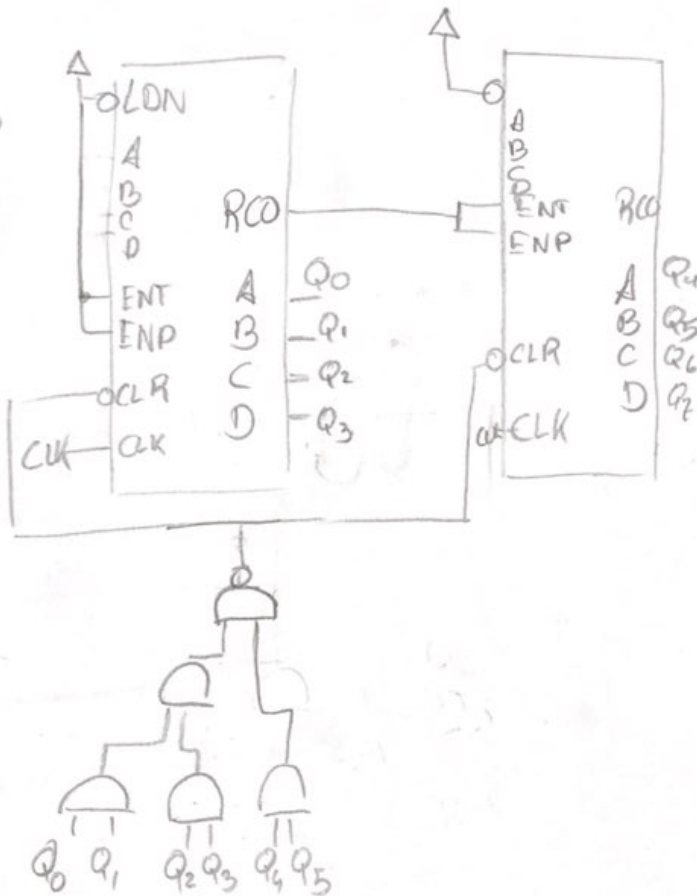 LDN
A
B
C
D
ENT
ENP
CLR
CLK
CLK
RCO
A Q0
B Q1
C Q2
D Q3
A
B
C
D
ENT
ENP
CLR
CLK
CLK
RCO
A Q4
B Q5
C Q6
D Q7
Q0 Q1 Q2 Q3 Q4 Q5